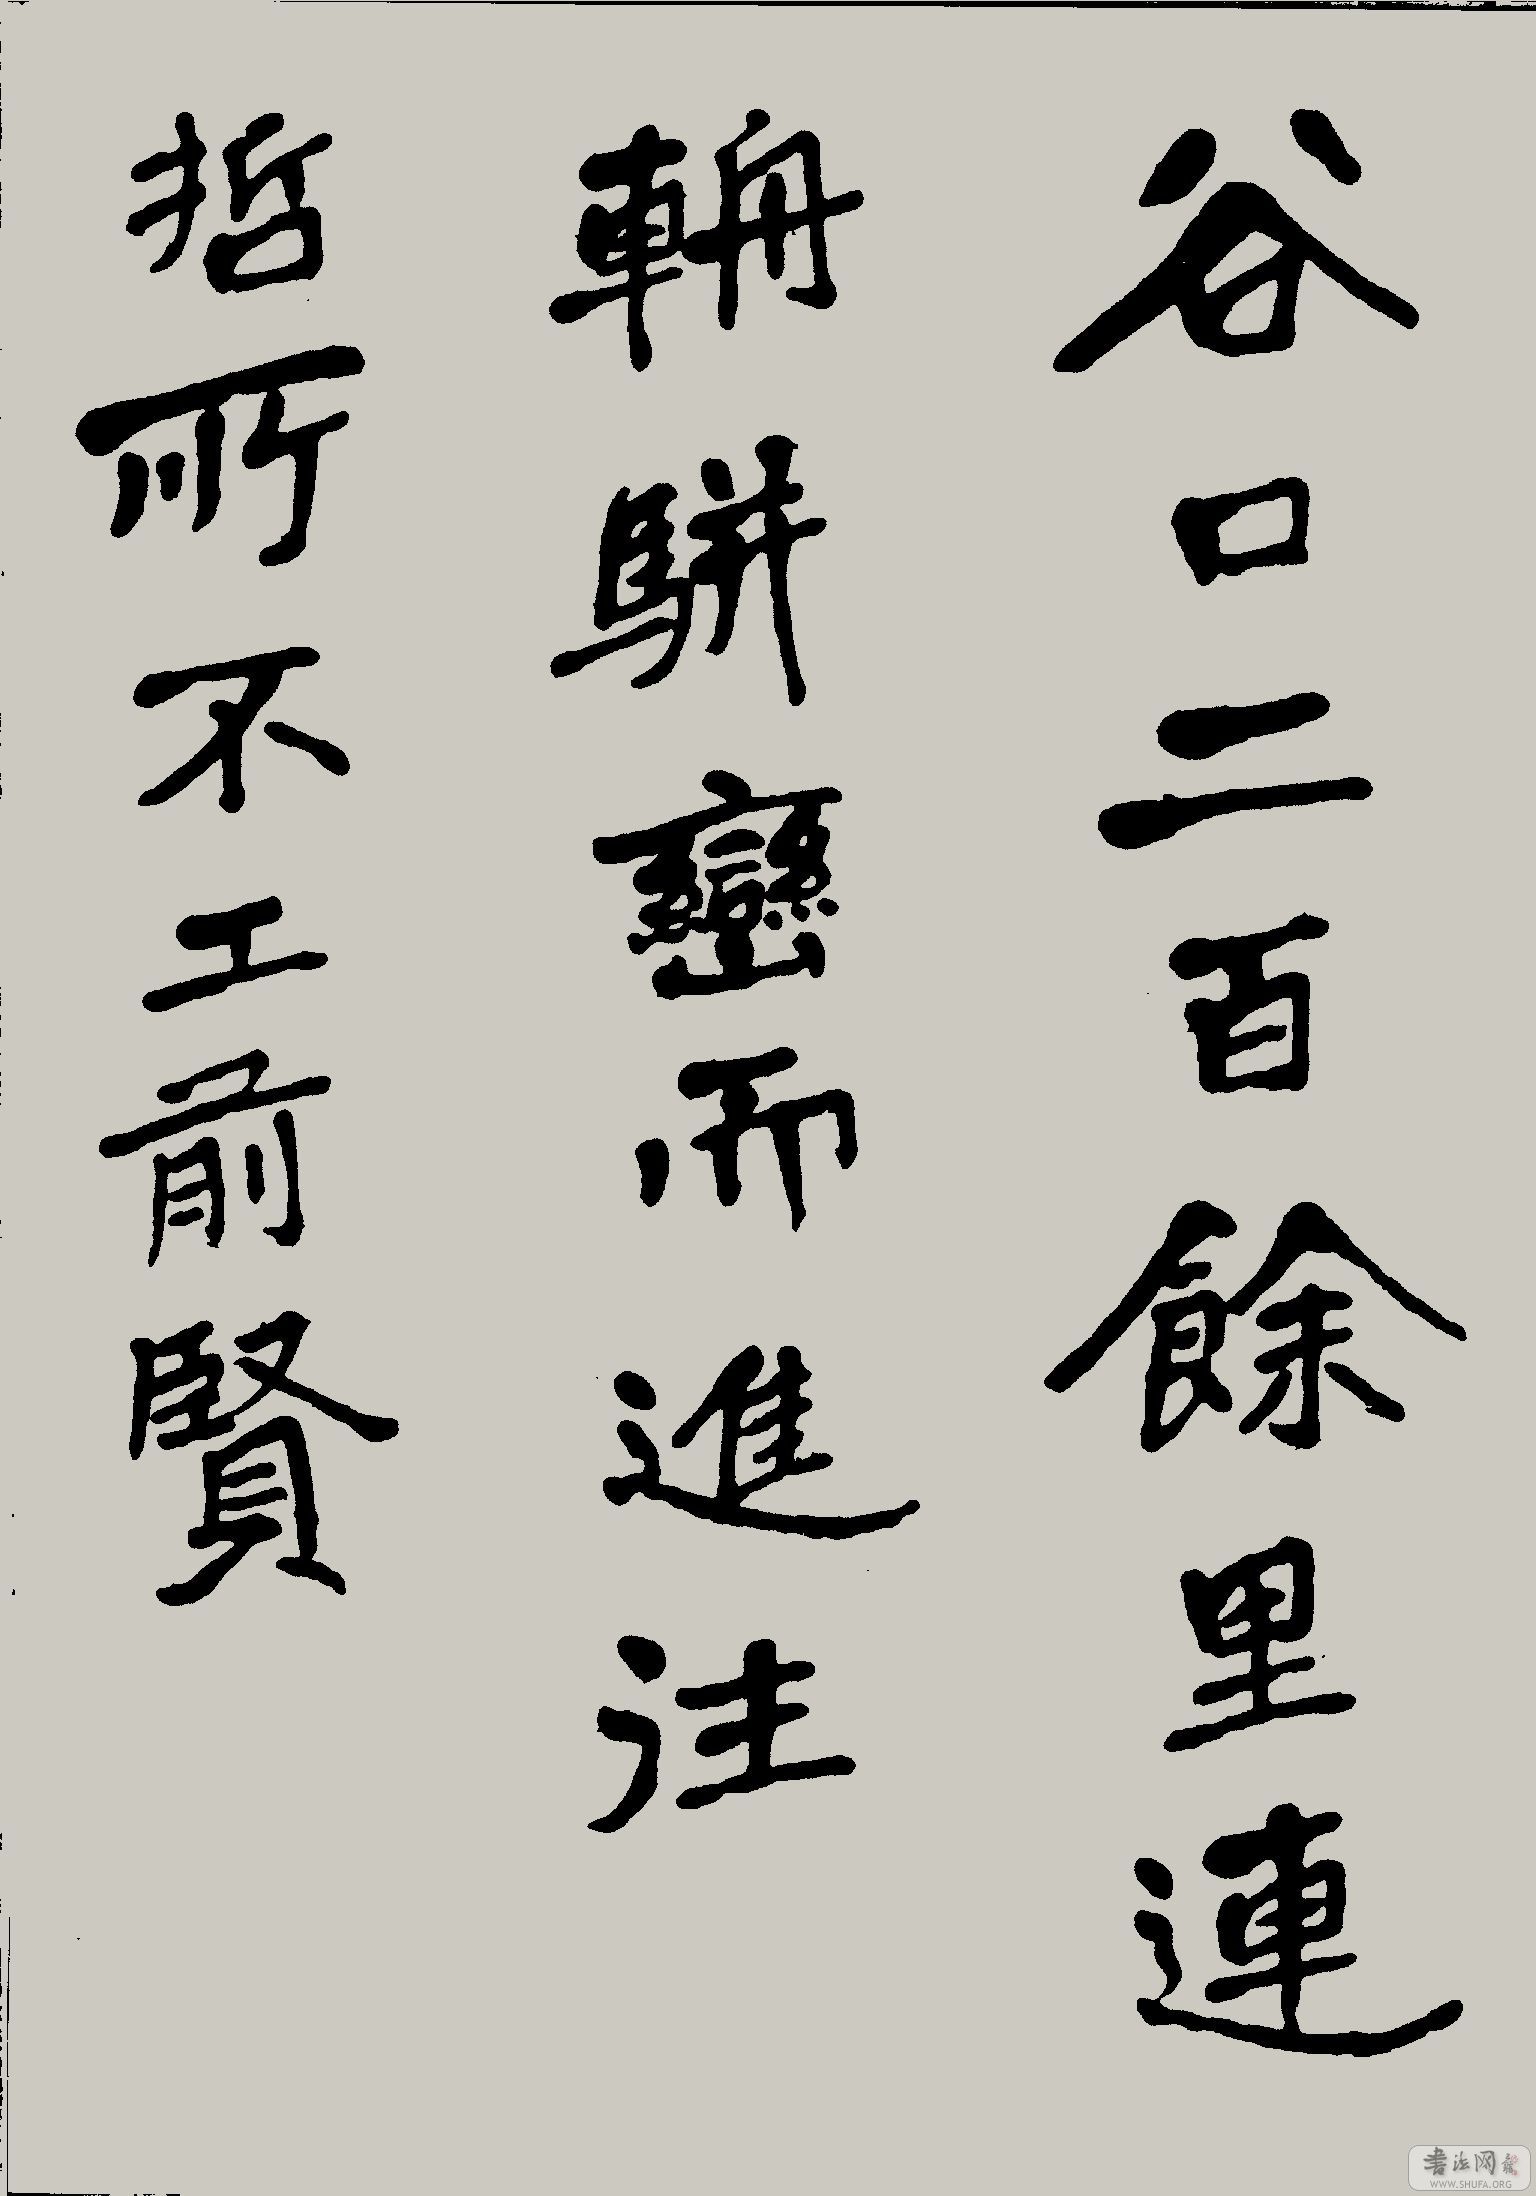 谷口二百餘里連
輈駢轡而進往
哲所不工前賢
書法网
WWW.SHUFA.ORG